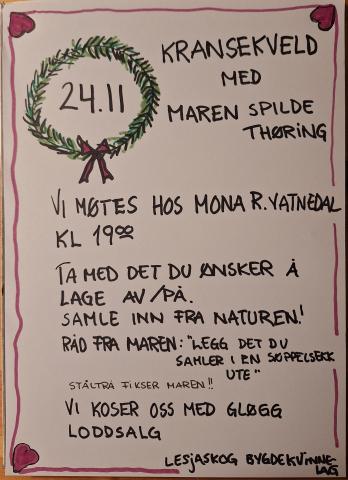 24.11
KRANSEKVELD
MED
MAREN SPILDE
THØRING
VI MØTES HOS MONA R. VATNEDAL
KL 19⁰⁰
TA MED DET DU ØNSKER Å
LAGE AV/PÅ.
SAMLE INN FRA NATUREN!
RÅD FRA MAREN: "LEGG DET DU
SAMLER I EN SØPPELSEKK
UTE"
STÅLTRÅ FIKSER MAREN!!
VI KOSER OSS MED GLØGG
LODDSALG
LESJASKOG BYGDEKVINNE-
LAG